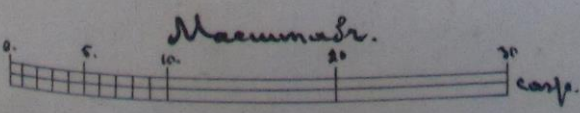 Масштабъ.
0. 5. 10. 20 30
саж.